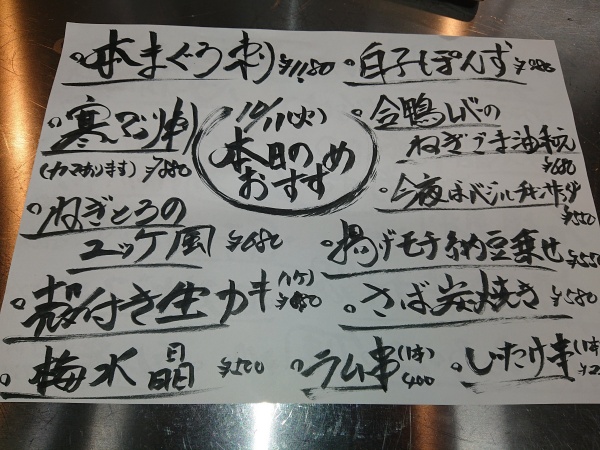 本まぐろ刺 ¥1180
寒ブリ刺
(カマあります) ¥880
ねぎとろの
ユッケ風 ¥680
殻付き生カキ (1ケ) ¥480
梅水晶 ¥500
(火)
本日の
おすすめ
白子ぽんず
合鴨レバーの
ねぎごま油和え
¥680
¥550
揚げモチ納豆乗せ ¥550
さば炭焼き ¥580
ラム串 (1本) 400
しいたけ串 (1本)